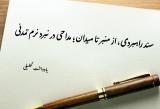 سند راهبردی، از منبر تا میدان؛ مداحی در نبرد نرم تمدنی
یادداشت تحلیلی